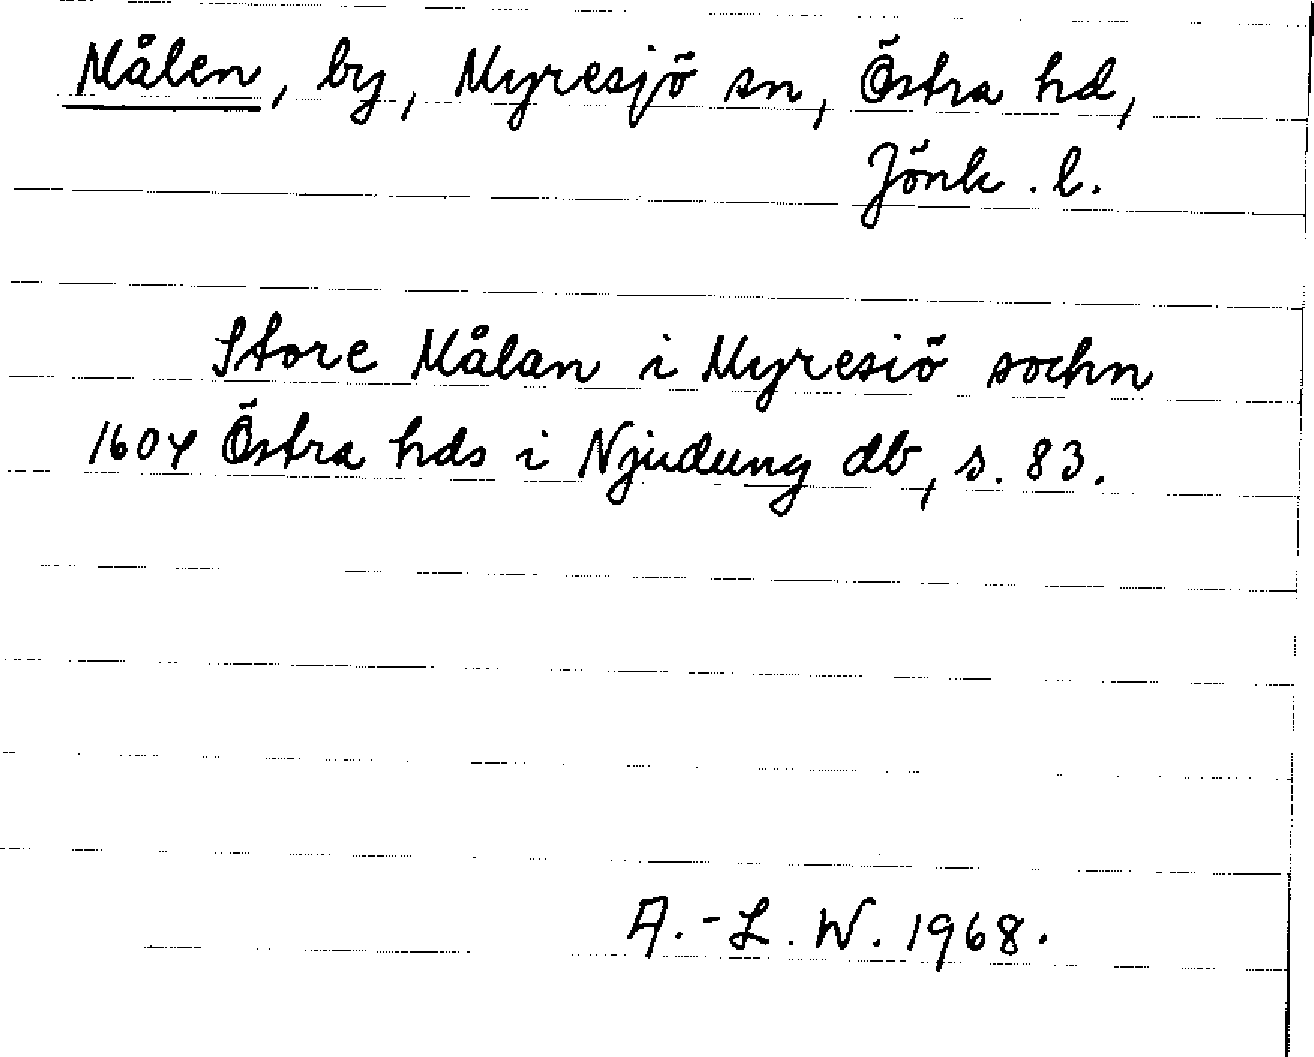 Målen, by, Myresjö sn, Östra hd,
Jönk. l.
Store Målan i Myresiö sochn
1604 Östra hds i Njudung db, s. 83.
A.-L. W. 1968.